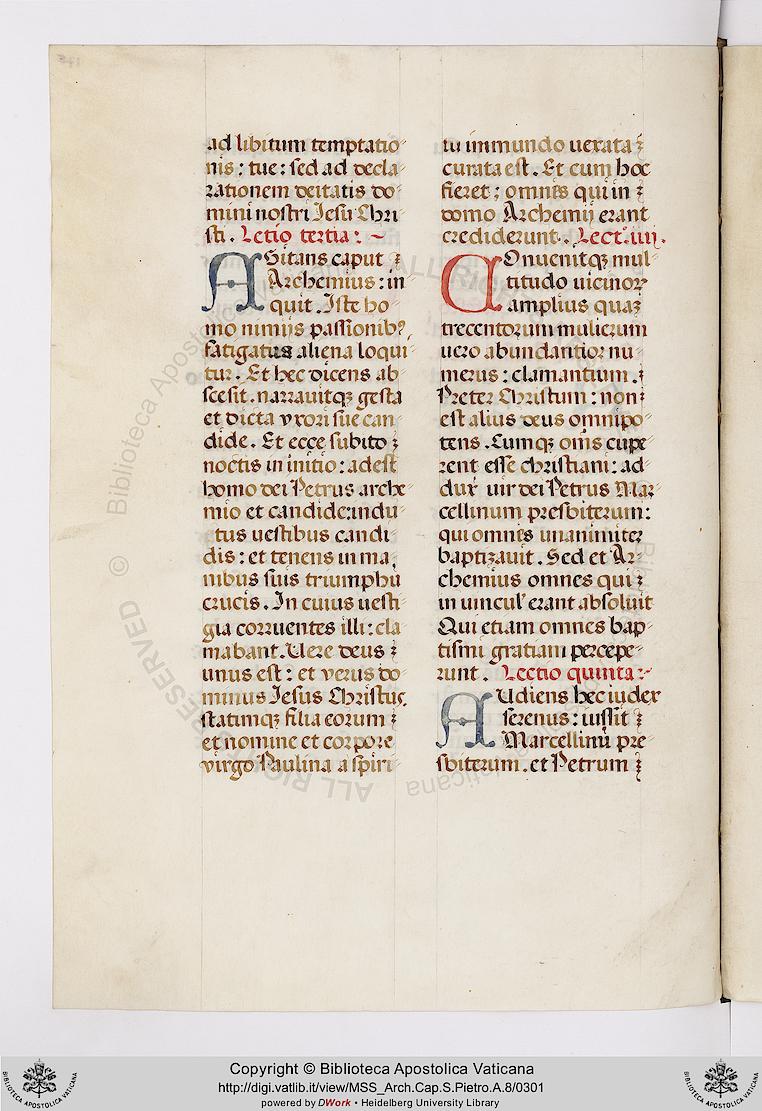 ad libitum temptatio
nis: tue: sed ad decla
rationem deitatis do
mini nostri Jesu Chri
sti. Letio tertia:
AGitans caput
Archemius: in
quit. Iste ho
mo nimijs passionibꝰ
fatigatus aliena loqui
tur. Et hec dicens ab
scesit. narrauitqꝫ gesta
et dicta vxori sue can
dide. Et ecce subito
noctis in initio: adest
homo dei Petrus arche
mio et candide: indu
tus uestibus candi
dis: et tenens in ma
nibus suis triumphū
crucis. In cuius uesti
gia corruentes illi: cla
mabant. Uere deus
unus est: et verus do
minus Jesus Christus
statimqꝫ filia eorum
et nomine et corpore
virgo Paulina a spiri
tu immundo uexata
curata est. Et cum hoc
fieret; omnes qui in
domo Archemij erant
crediderunt. Lect. iiij.
COnuenitqꝫ mul
titudo uicinoꝝ
amplius quaꝫ
trecentorum mulierum
uero abundantior nu
merus: clamantium.
Preter Christum: non
est alius deus omnipo
tens. Cumqꝫ om̄s cupe
rent esse christiani: ad
dux uir dei Petrus Mar
cellinum presbiterum:
qui omnes unanimiter
baptizauit. Sed et Ar
chemius omnes qui
in uincul' erant absoluit
Qui etiam omnes bap
tismi gratiam percepe
runt. Lectio quinta:
AUdiens hec iudex
serenus: iussit
Marcellinū pre
sbiterum. et Petrum
Copyright © Biblioteca Apostolica Vaticana
http://digi.vatlib.it/view/MSS_Arch.Cap.S.Pietro.A.8/0301
powered by DWork • Heidelberg University Library